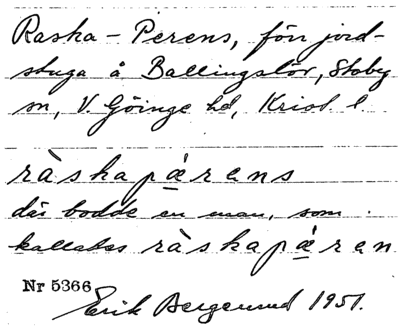 Raska-Perens, förr jord-
stuga å Ballingslöv, Stoby
sn, V. Göinge hd, Krist. l.
ràskapæ̠rens
där bodde en man, som
kallades ràskapæ̠ren
Nr 5366
Erik 1951.